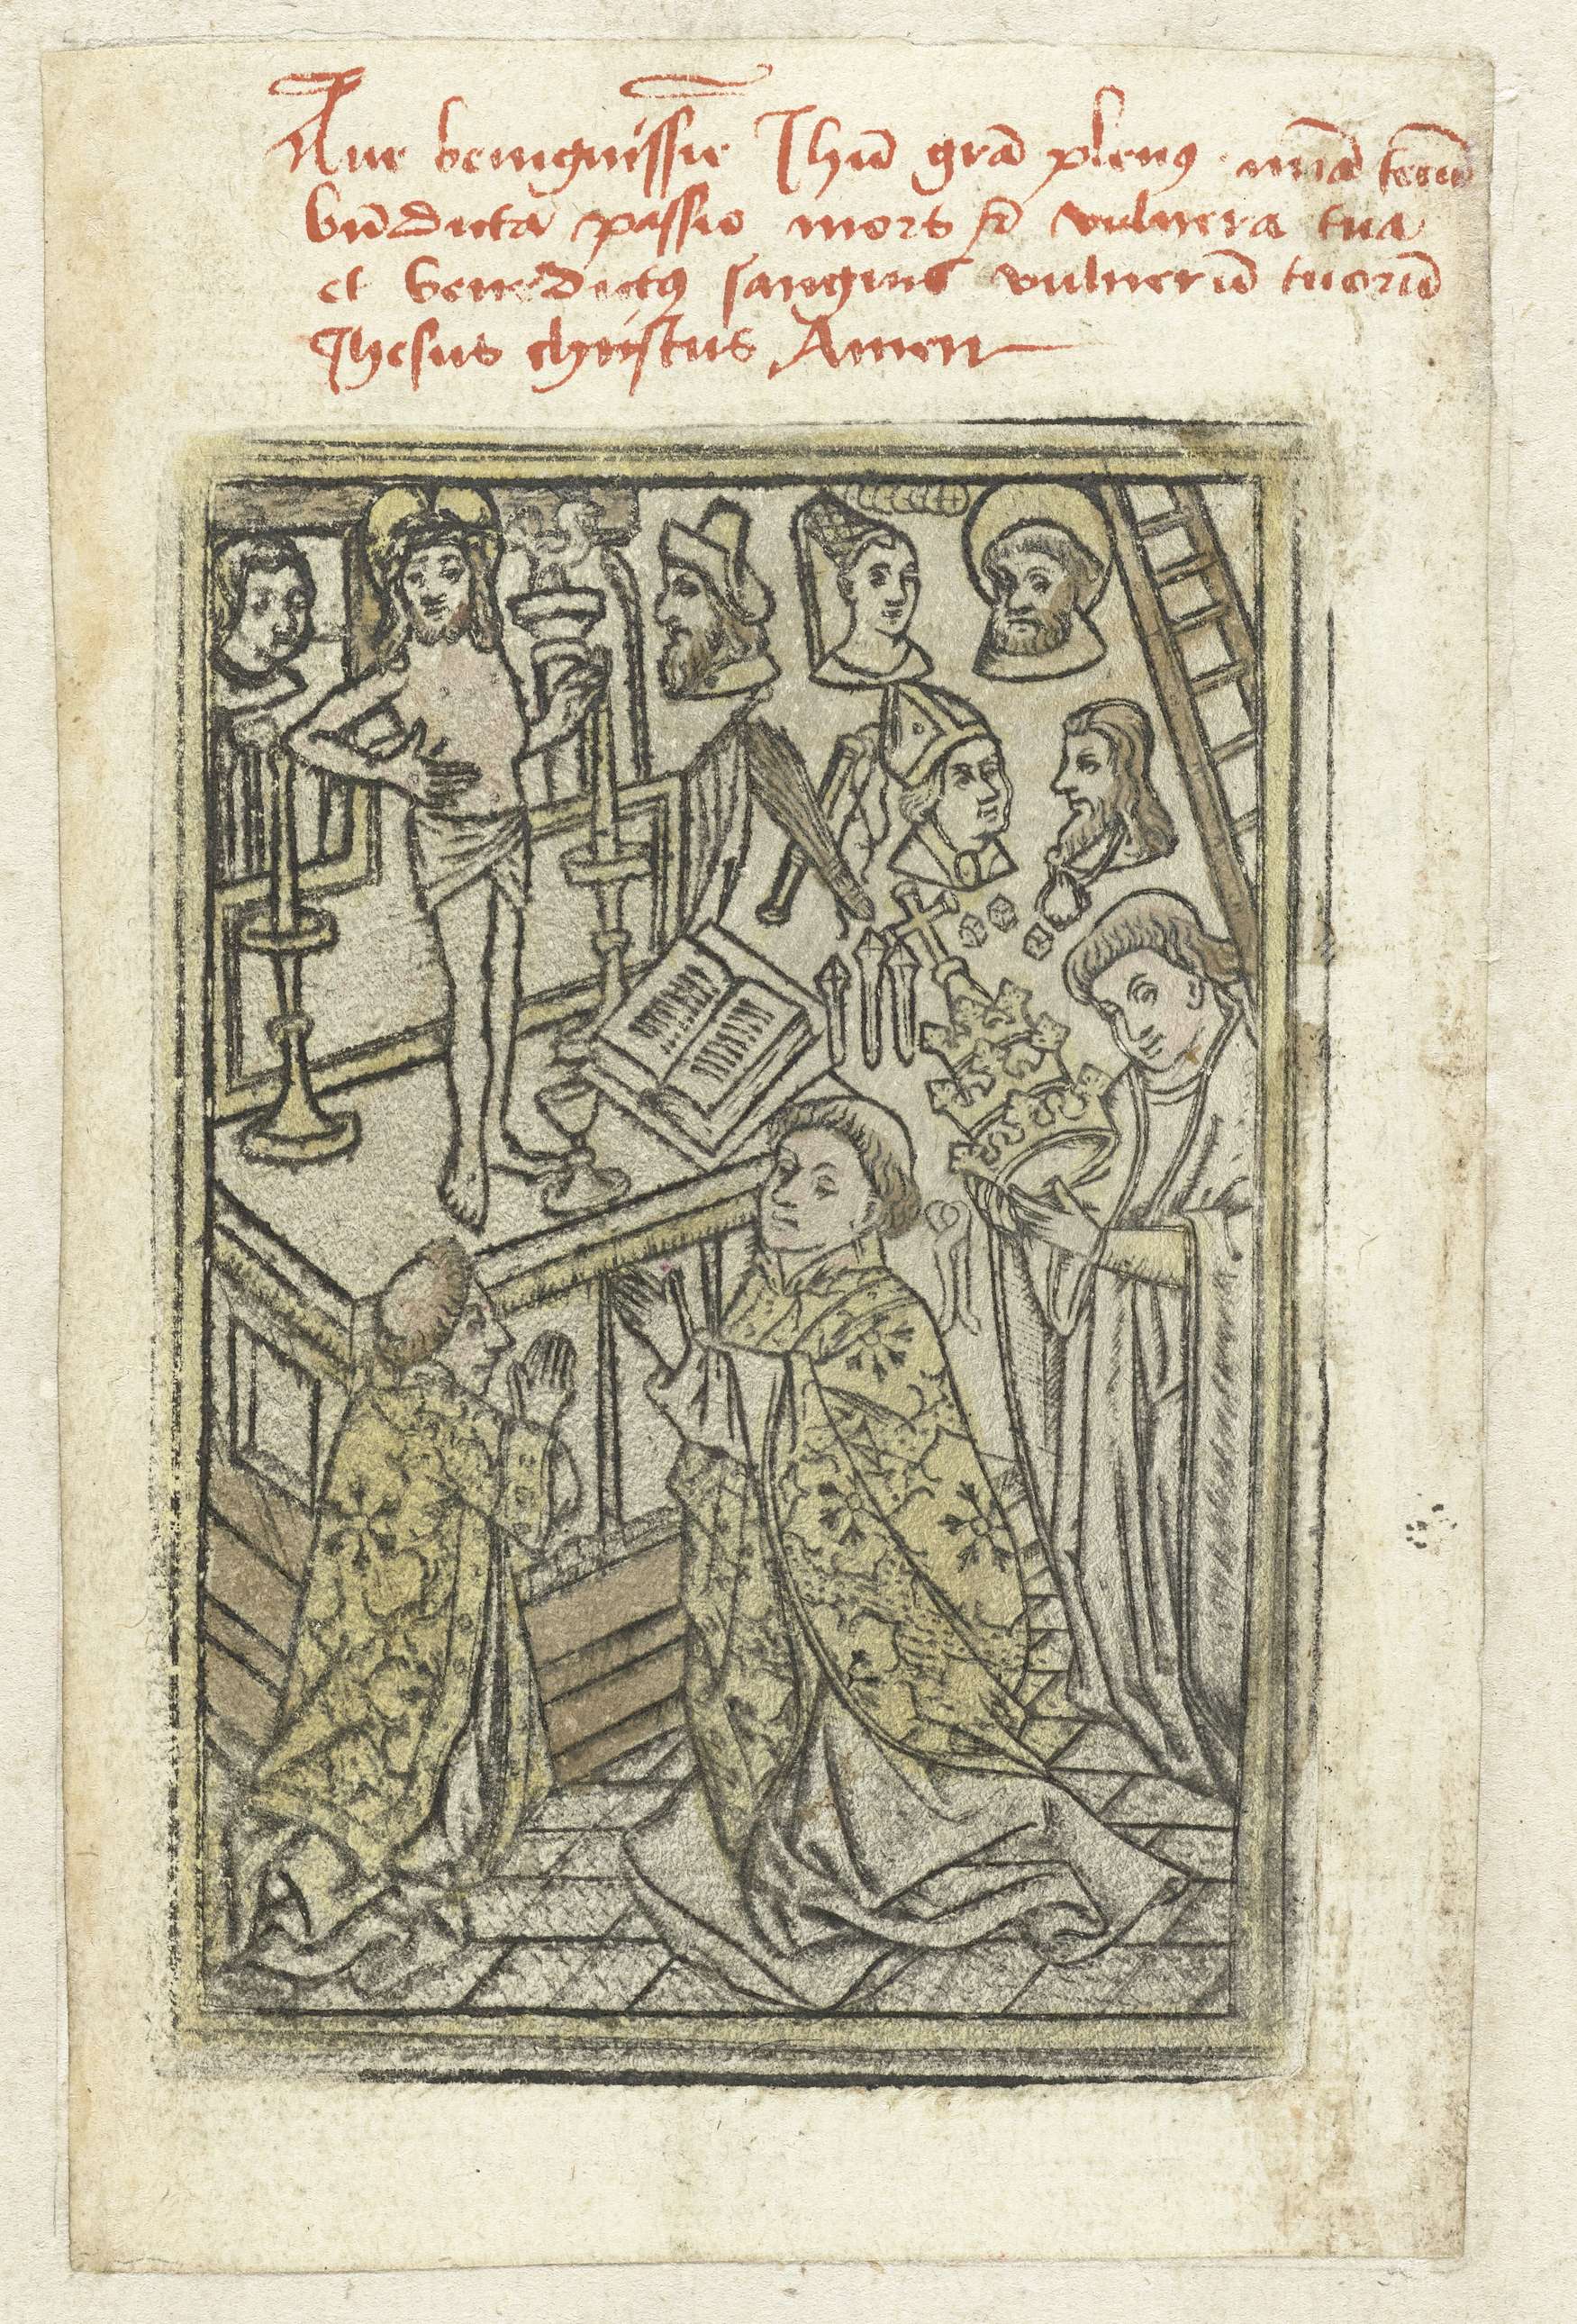 Aue benignissīe Ihū grā plenus mīa tecū
bn̄dicta passio mors et vulnera tua
et benedictus sanguis vulnerū tuorū
Ihesus christus Amen